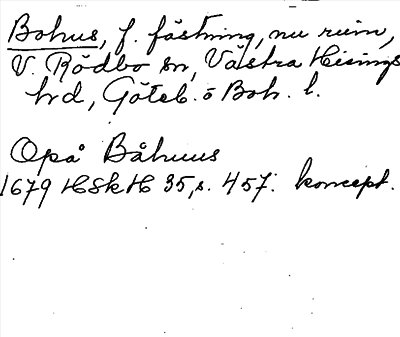 Bohus, f. fästning, nu ruin,
V. Rödbo sn, Västra Hisings
hd, Göteb. o Boh. l.
Opå Båhuus
1679 HSkH 35, s. 457. koncept.